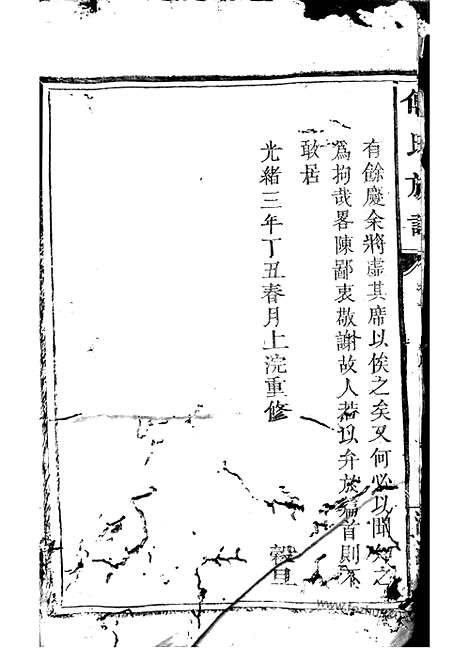 氏族譜
有餘慶余將虛其席以俟之矣又何必以聞知之
為拘哉畧陳鄙衷敬謝故人若以弁於篇首則不
敢居
光緒三年丁丑春月上浣重修
穀旦